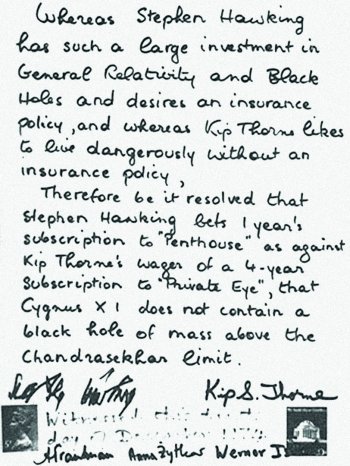 Whereas Stephen Hawking
has such a large investment in
General Relativity and Black
Holes and desires an insurance
policy, and whereas Kip Thorne likes
to live dangerously without an
insurance policy,
Therefore be it resolved that
Stephen Hawking bets 1 year's
subscription to "Penthouse" as against
Kip Thorne's wager of a 4-year
Subscription to "Private Eye", that
Cygnus X 1 does not contain a
black hole of mass above the
Chandrasekhar limit.
Kip S. Thorne
Witnessed this
day of December
Anna Żytkow Werner